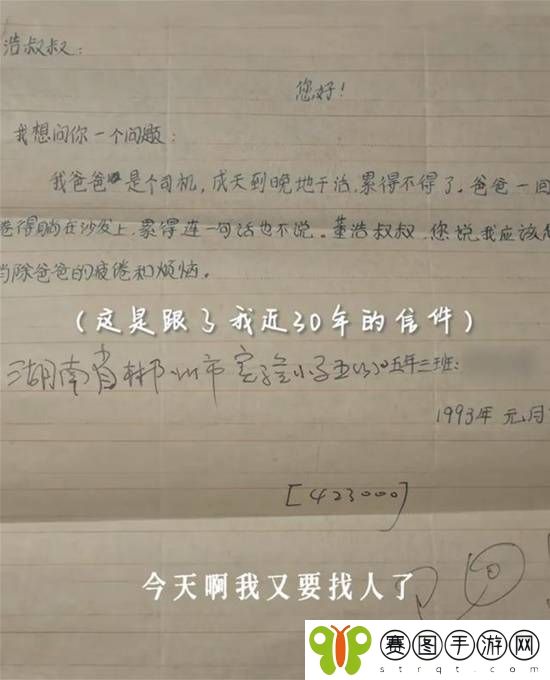 浩叔叔:
您好!
我想问你一个问题:
我爸爸是个司机,成天到晚地干活,累得不得了。爸爸一回
倦得躺在沙发上,累得连一句话也不说。董浩叔叔,您说我应该怎
当除爸爸的疲倦和烦恼。
(这是跟了我近30年的信件)
湖南省郴州市实验小学五年三班:
1993年 元月
[423000]
今天啊我又要找人了
赛图手游网
strqt.com